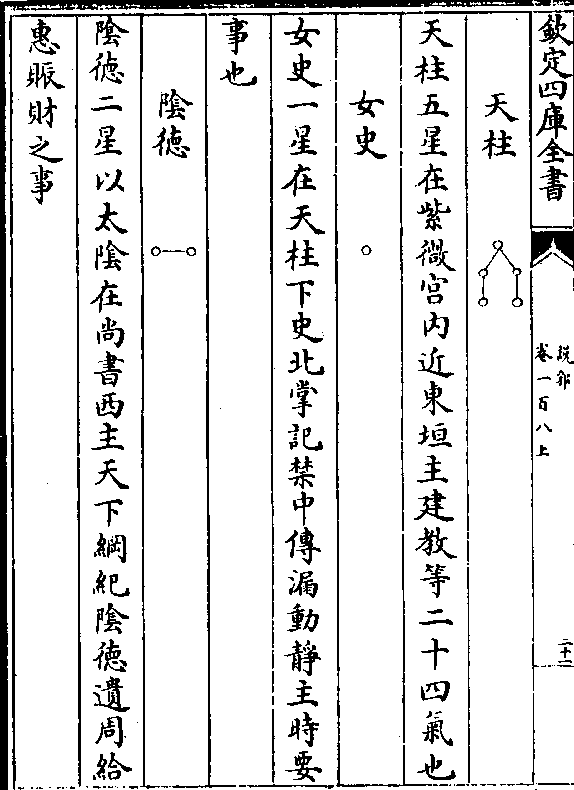 欽定四庫全書
說郛
卷一百八上
二十二
天柱
天柱五星在紫微宫内近東垣主建教等二十四氣也
女史
女史一星在天柱下史北掌記禁中傳漏動靜主時要
事也
陰德
陰德二星以太陰在尚書西主天下綱紀陰德遺周給
惠賑財之事